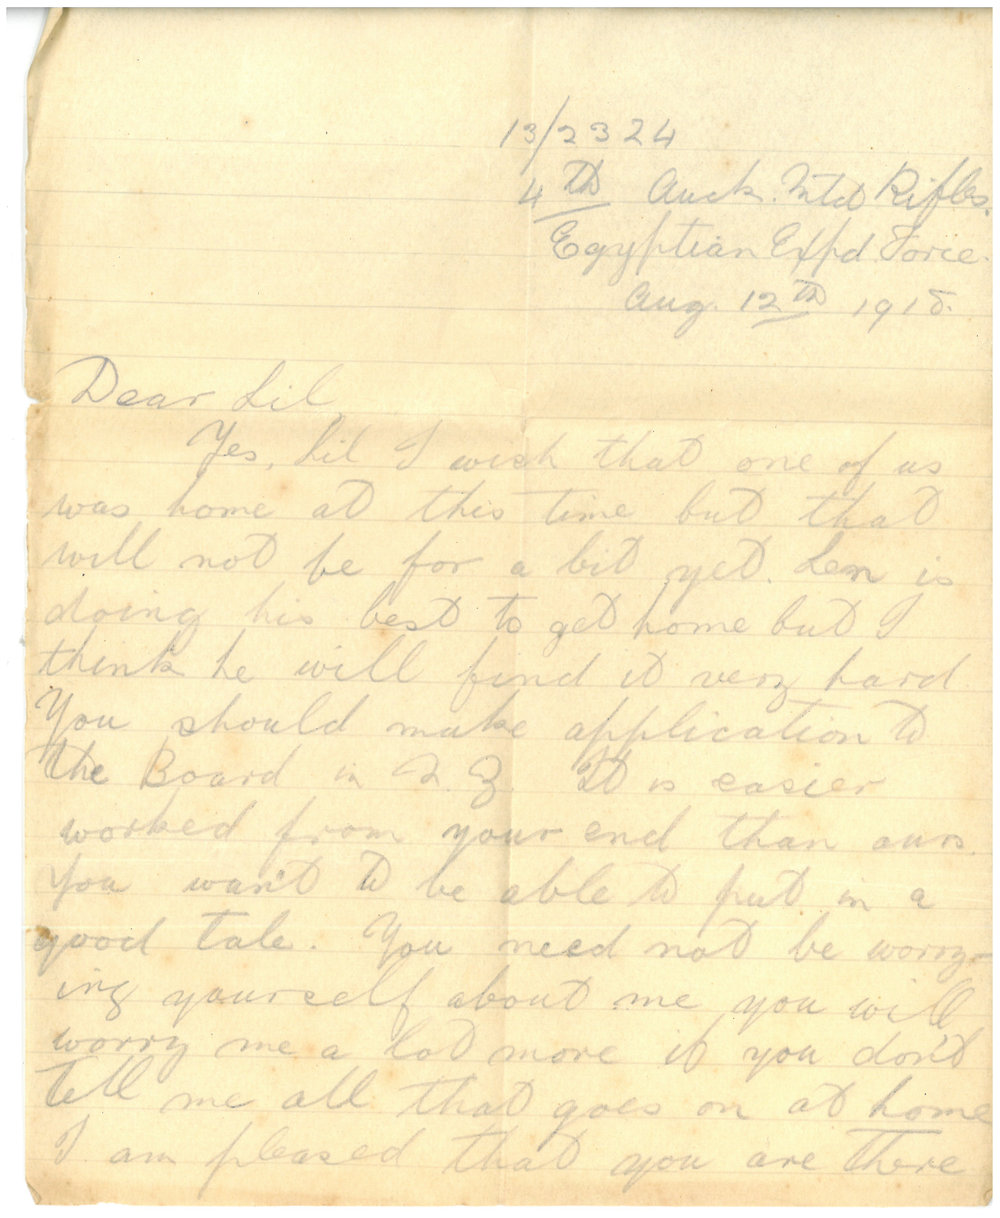 13/2324
4th Auck. Mtd Rifles.
Egyptian Expd. Force.
Aug. 12th 1918.
Dear Lil
Yes, Lil I wish that one of us
was home at this time but that
will not be for a bit yet. Len is
doing his best to get home but I
think he will find it very hard
You should make application to
the Board in N.Z. It is easier
worked from your end than ours.
You want to be able to put in a
good tale. You need not be worry-
ing yourself about me you will
worry me a lot more if you don't
tell me all that goes on at home
I am pleased that you are there